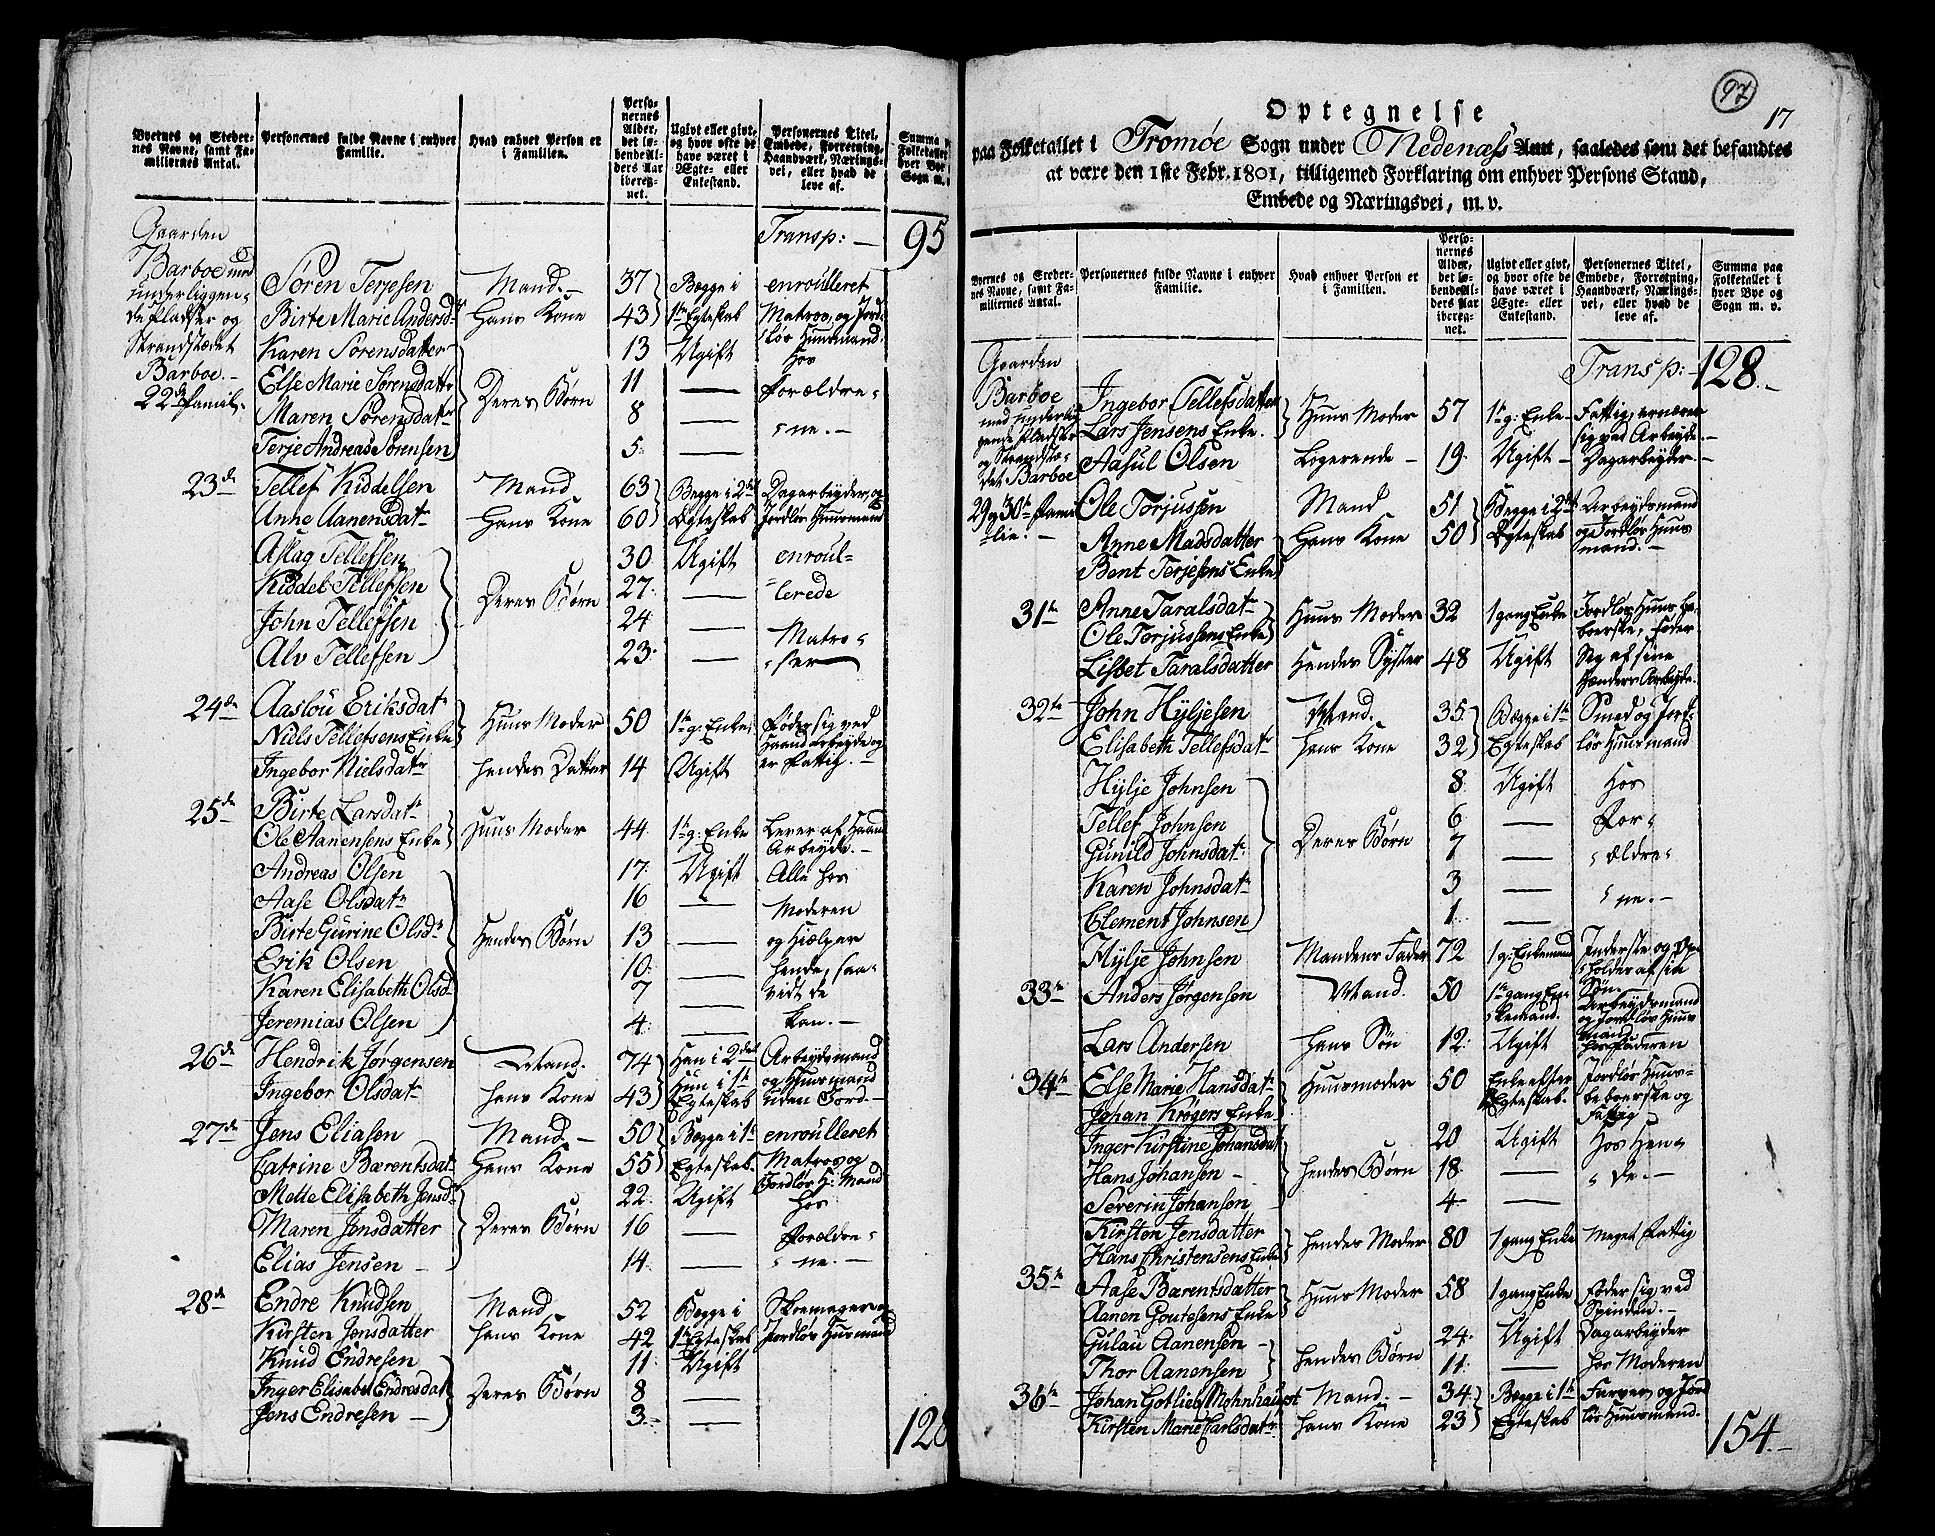 Byernes og Stedernes Navne, samt Familiernes Antal. | Personernes fulde Navne i enhver Familie. | Hvad enhver Person er i Familien. | Personernes Alder, det løbende Alders Aar iberegnet. | Ugivt eller givt, og hvor ofte de have været i Ægte- eller Enkestand. | Personernes Titel, Embede, Forretning, Haandværk, Næringsvei, eller hvad de leve af. | Summa Folketallet hver Bye Sogn m.
Gaarden Transp: — 95
Barboe med Søren Terjesen Mand. — 37 Begge i enroulleret
underliggen- Birte Marie Andersdr Hans Kone 43 1te Egteskab Matros, og Jord-
de Pladser og Karen Sørensdatter 13 Ugift løs Huusmand
Strandstædet Else Marie Sørensdattr 11 — Hos
Barboe. — Maren Sørensdatr Deres Børn 8 — Forældre-
22de Famil- Terje Andreas Sørensen 5. — ne. —
23de Tellef Kiddelsen Mand 63 Begge i 2det Dagarbeyder, og
Anne Aanensdatr Hans Kone 60 Egteskab Jordløs Huusmand
Aslag Tellefsen 30 Ugift enroul-
Kiddel Tellefsen Deres Børn 27. — lerede
John Tellefsen 24 — Matro-
Alv Tellefsen 23. — ser
24de Aaslou Eriksdatr Huus Moder 50 1te g: Enke Føder sig ved
Niels Tellefsens Enke Haand arbeyde og
Ingebor Nielsdatr Hendes Datter 14 Ugift er Fattig. —
25de Birte Larsdatr Huus Moder 44. 1te g: Enke Lever af Haand
Ole Aanensens Enke Arbeyde. —
Andreas Olsen 17. Ugift Alle hos
Aase Olsdatr 16 — Moderen
Birte Gurine Olsdr Hendes Børn 13 — og Hielper
Erik Olsen 10. — hende, saa-
Karen Elisabeth Olsd 7 — vidt de
Jeremias Olsen 4. — kan. —
26de Hendrik Jørgensen Mand. 74 Han i 2det Arbeydsmand
Ingebor Olsdatr Hans Kone 43 Hun i 1te Egteskab og Huusmand uden Jord —
27de Jens Eliasen Mand. — 50 Begge i 1te enroulleret
Catrine Bærentsdatr Hans Kone 55 Egteskab. Matros og
Mette Elisabeth Jensdr 22. Ugift Jordløs H: Mand
Maren Jensdatter Deres Børn 16 — hos Forældre-
Elias Jensen — 14. — ne. —
28de Endre Knudsen Mand 52 Begge i Skomager og
Kirsten Jensdatter Hans Kone 42 1te Egteskab Jordløs Huusmand
Knud Endresen 11. Ugift
Inger Elisabet Endresdatr Deres Børn 8 —
Jens Endresen — 3. —
128
97
17
Optegnelse
paa Folketallet i Tromøe Sogn under Nedenæss Amt, saaledes som det befandtes
at være den 1ste Febr. 1801, tilligemed Forklaring om enhver Persons Stand,
Embede og Næringsvei, m. v.
Byernes og Stedernes Navne, samt Familiernes Antal. | Personernes fulde Navne i enhver Familie. | Hvad enhver Person er i Familien. | Personernes Alder, det løbende Alders Aar iberegnet. | Ugivt eller givt, og hvor ofte de have været i Ægte- eller Enkestand. | Personernes Titel, Embede, Forretning, Haandværk, Næringsvei, eller hvad de leve af. | Summa paa Folketallet i hver Bye og Sogn m. v.
Gaarden Transp: — 128. —
Barboe Ingebor Tellefsdatter Huus Moder 57 1te g: Enke — Fattig, ernærer
med underlig- Lars Jensens Enke. sig ved Arbeyde. —
gende Pladser Aasul Olsen Logerende — 19. Ugift — Dagarbeyder. —
og Strandstædet Barboe
29 og 30te Familie. — Ole Torjussen Mand 51 Begge i 2det Arbeydsmand
Anne Madsdatter Hans Kone 50 Egteskab og Jordløs Huusmand. —
Bent Terjesens Enke
31te Anne Taralsdatr Huus Moder 32 1 gang Enke Jordløs Huus be-
Ole Torjussens Enke boerske, føder
Lisbet Taralsdatter Hendes Syster 48 Ugift Sig af sine Hænders Arbeyde.
32te John Hyljesen Mand. 35 Begge i 1te Smed og Jord-
Elisabeth Tellefsdatr Hans Kone 32 Egteskab løs Huusmand
Hylje Johnsen 8 Ugift Hos
Tellef Johnsen 6 — For-
Gunild Johnsdatr Deres Børn 7 — ældre-
Karen Johnsdatr 3 — ne. —
Clement Johnsen 1. —
Hylje Johnsen Mandens Fader 72 1 g: Enkemand Inderste og Op-
holdes af sin Søn. —
33te Anders Jørgensen Mand. 50 1te gang Enkemand. Arbeydsmand og Jordløs Huusmand
Lars Andersen Hans Søn 12. Ugift hos Faderen
34te Else Marie Hansdatr Huusmoder 50 Enke efter Jordløs Huus-
Johan Krøgers Enke Egteskab. beboerske og Fattig
Inger Kirstine Johansdat 20 Ugift Hos Hen-
Hans Johansen — Hendes Børn 18. — de. —
Severin Johanson 4. —
Kirsten Jensdatter Hendes Moder 80 1 gang Enke Meget Fattig
Hans Christensens Enke
35te Aase Barentsdatter Huus Moder 58 1 gang Enke Føder sig ved
Aanen Goutesens Enke Spinden. —
Gulau Aanensen — Hendes Børn 24. Ugift Dagarbeyder
Thor Aanensen 11. — hos Moderen
36te Johan Gotlieb Mohnhaupt Mand. — 34 Begge i 1te Farver, og Jord
Kirsten Marie Carlsdatr Hans Kone 23 Egteskab løs Huusmand.
154. —